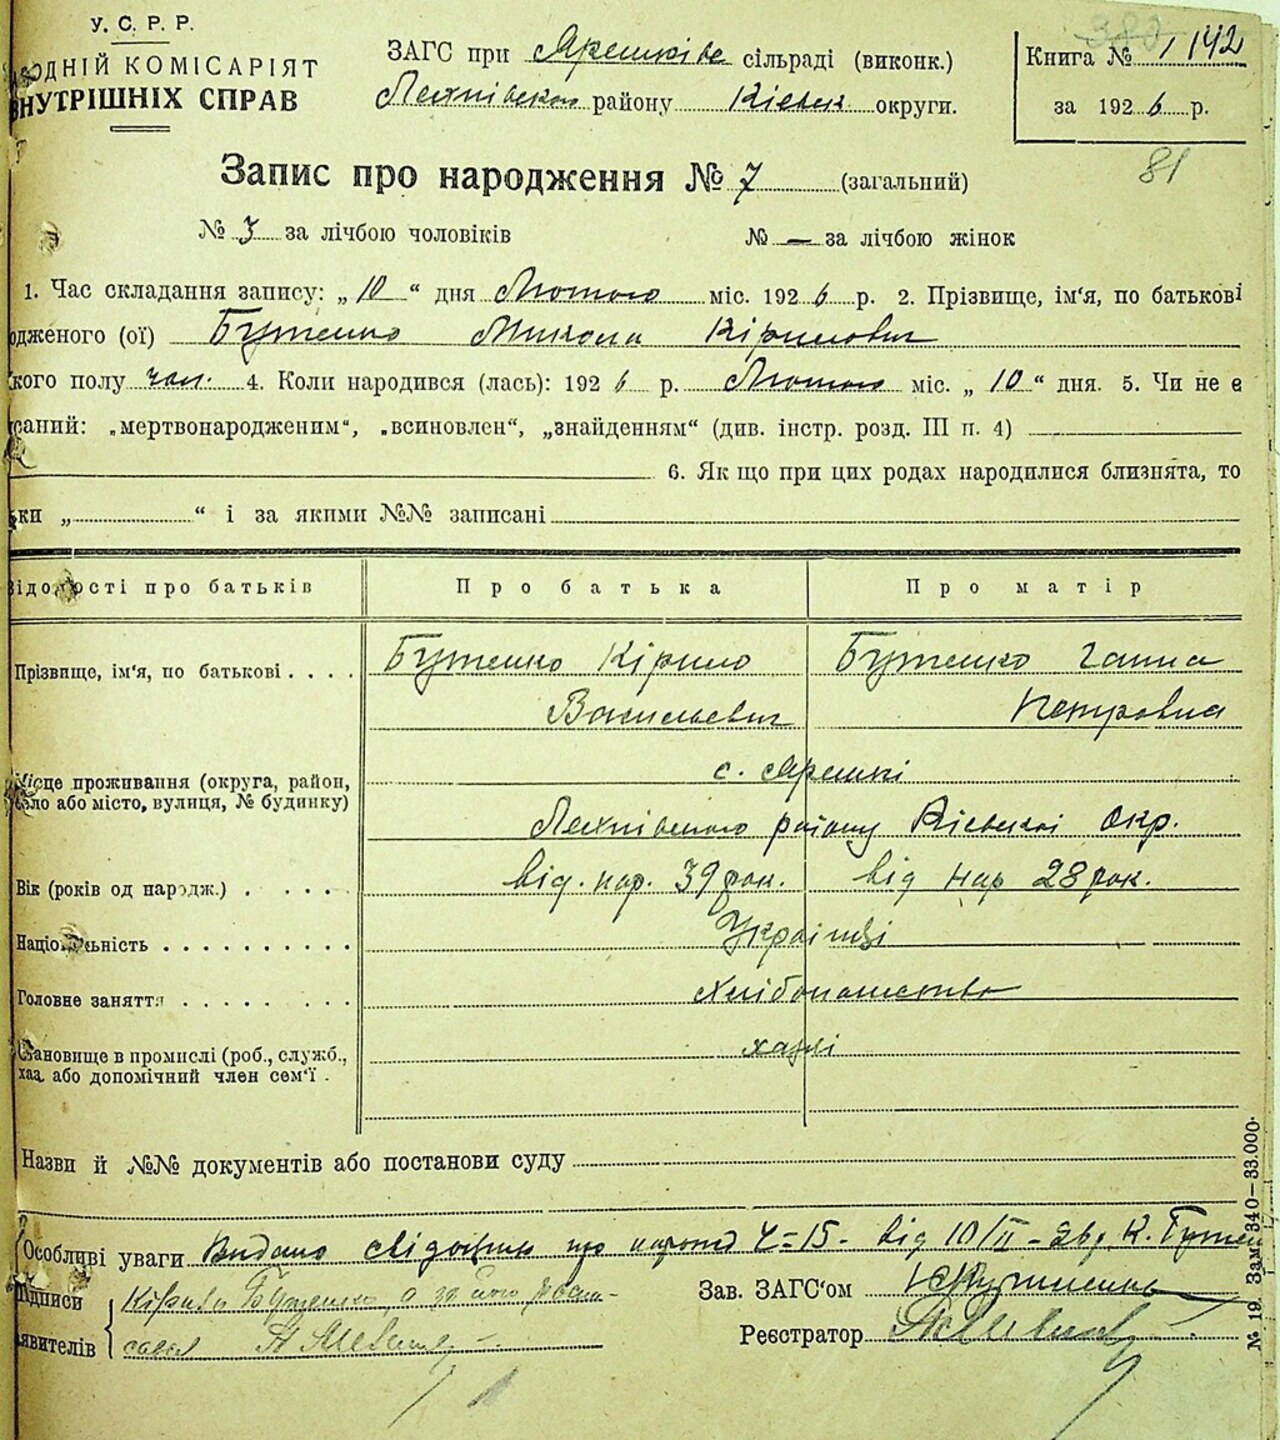 У. С. Р. Р.
ОДНІЙ КОМІСАРІЯТ
НУТРІШНІХ СПРАВ
ЗАГС при Арешків сільраді (виконк.)
району Кієвск округи.
Книга № 1 142
за 1926 р.
81
Запис про народження № 7 (загальний)
№ 3 за лічбою чоловіків № — за лічбою жінок
1. Час складання запису: „10“ дня Лютого міс. 1926 р. 2. Прізвище, ім'я, по батькові
одженого (ої) Бутенко Микола Кірилович
кого полу чол. 4. Коли народився (лась): 1926 р. Лютого міс. „10“ дня. 5. Чи не є
саний: „мертвонародженим“, „всиновлен“, „знайденням“ (див. інстр. розд. III п. 4)
6. Як що при цих родах народилися близнята, то
ки „ “ і за якими №№ записані
Відомості про батьків Про батька Про матір
Прізвище, ім'я, по батькові . . . . Бутенко Кірило Бутенко Ганна
Васильевич Петровна
Місце проживання (округа, район, с. Арешкі
село або місто, вулиця, № будинку)
району Кієвскоі Окр.
Вік (років од народж.) . . . . . від. нар. 39 рок. від нар 28 рок.
Національність . . . . . . . . . . Українці
Головне заняття . . . . . . . . хлібопашество
Становище в промислі (роб., служб., хазяі
хаз. або допомічний член сем'ї .
Назви й №№ документів або постанови суду
Особливі уваги Видано про народ Ч=15 - від 10/II - К. Бутен
Підписи Кірило Бутенко, а за його
явителів
Зав. ЗАГС'ом
Реєстратор
№ 19. Зам. 340—33.000.